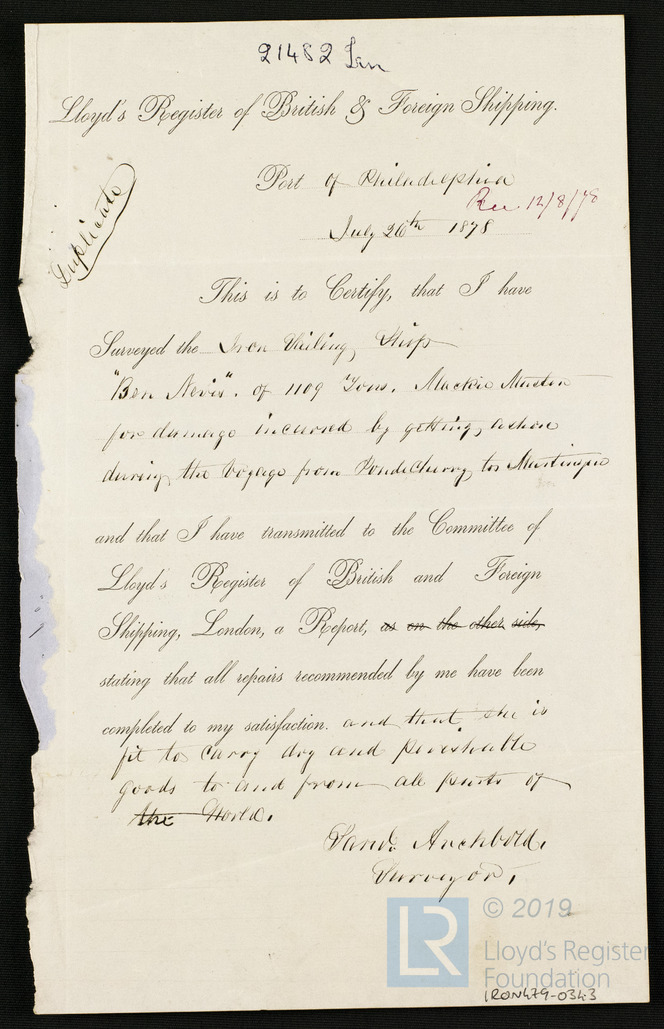 21482 Iron
Lloyd's Register of British & Foreign Shipping.
Port of Philadelphia
Rec 12/8/78
July 26th 1878
Duplicate
This is to Certify, that I have
Surveyed the Iron Sailing Ship
"Ben Nevis". of 1109 Tons. Mackie Master
for damage incurred by getting ashore
during the Voyage from Pondecherry to Martinique
and that I have transmitted to the Committee of
Lloyd's Register of British and Foreign
Shipping, London, a Report, as on the other side,
stating that all repairs recommended by me have been
completed to my satisfaction. and that she is
fit to carry dry and perishable
goods to and from all parts of
the World.
Archbold.
Surveyor.
LR
© 2019
Lloyd's Register
Foundation
IRON479-0343